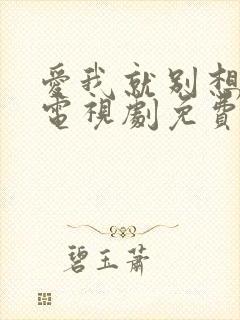 愛我就別想
電視劇免費
碧玉蕭